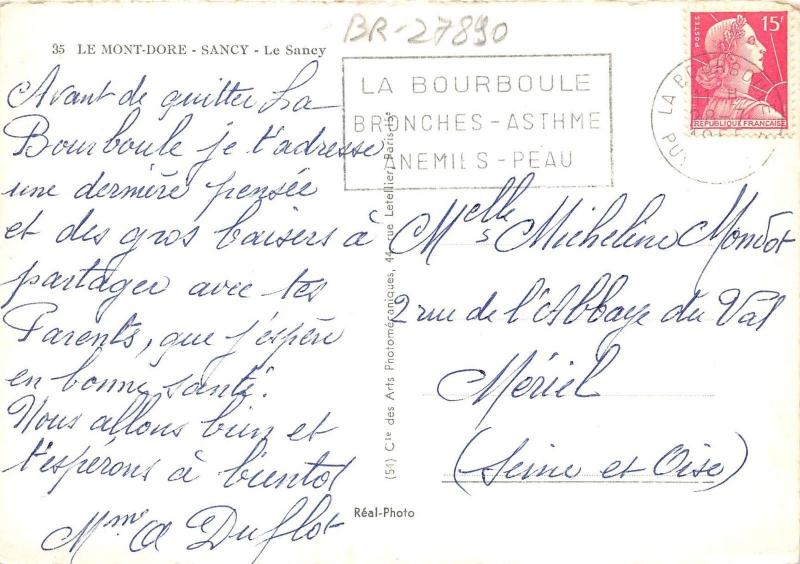 BR-27890
35 LE MONT-DORE - SANCY - Le Sancy
Avant de quitter La
Bourboule je t'adresse
une dernière pensée
et des gros baisers à
partager avec tes
Parents, que j'espère
en bonne santé.
Nous allons bien et
t'espérons à bientôt
Mme A Duflot
LA BOURBOULE
BRONCHES-ASTHME
ANEMIES-PEAU
POSTES
15F
REPUBLIQUE FRANÇAISE
LA BOURBOULE
PUY
(51) Cie des Arts Photomécaniques, 44, rue Letellier, Paris-15e
Melle Micheline Mondot
2 rue de l'Abbaye du Val
Mériel
(Seine et Oise)
Réal-Photo